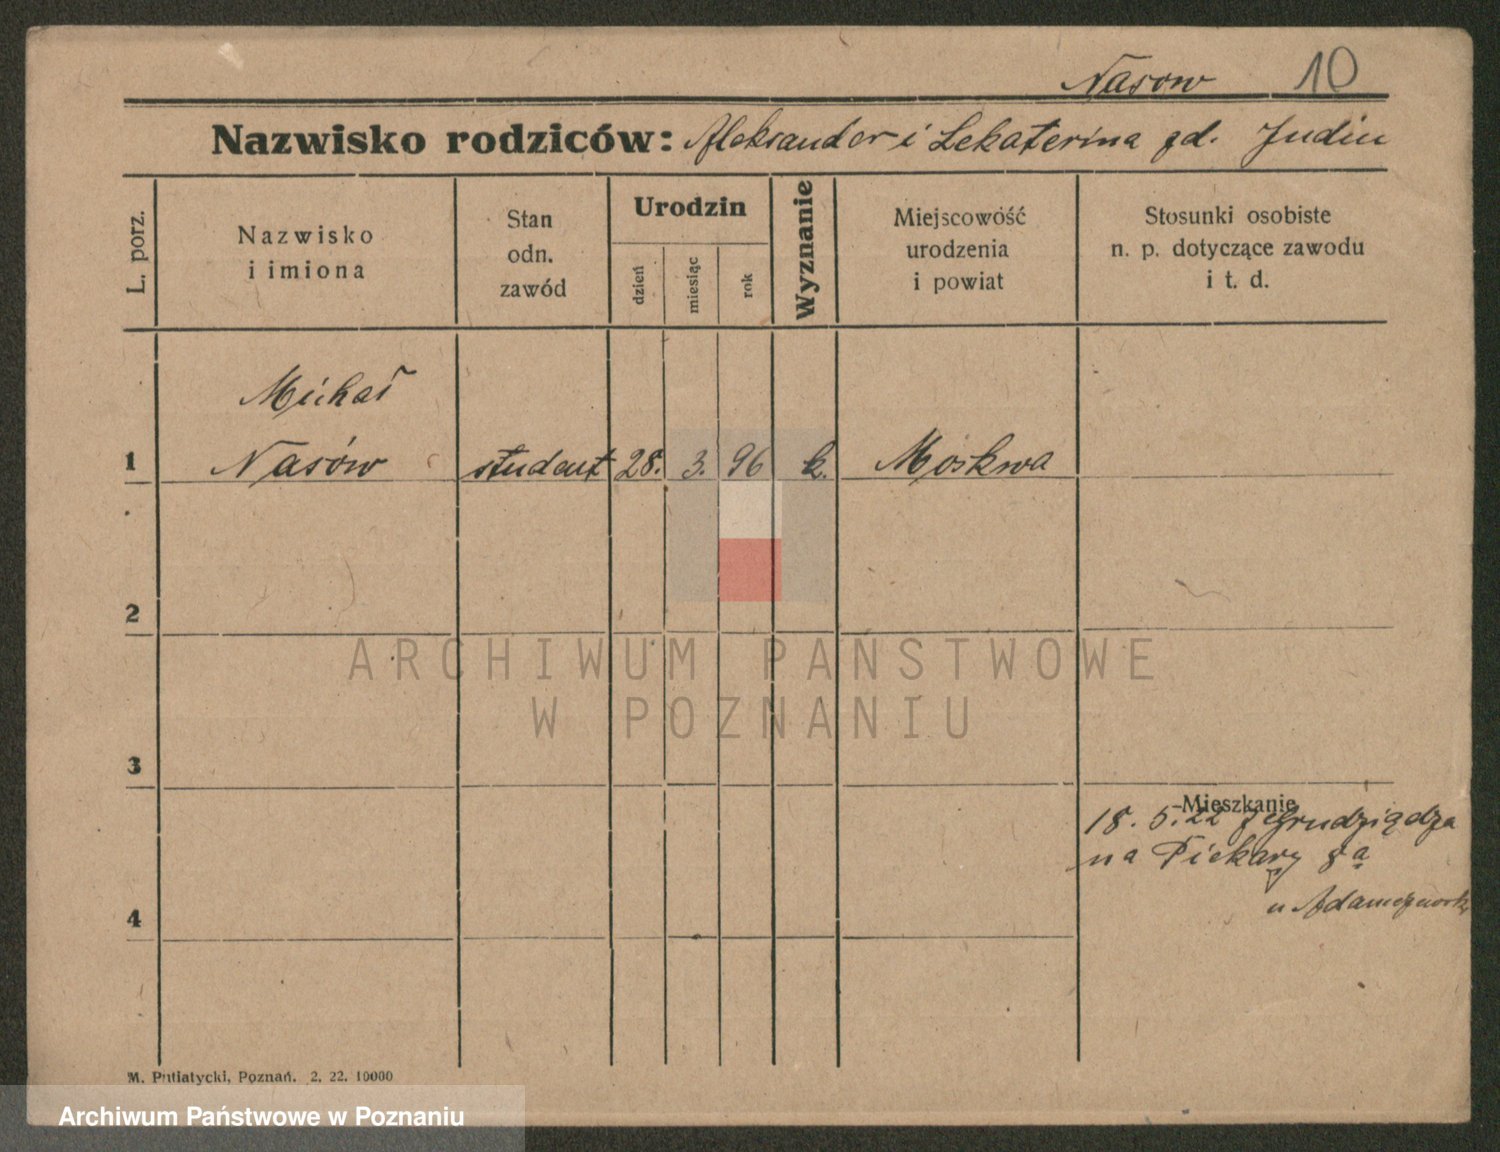 Nasow 10
Nazwisko rodziców: Aleksander i Lekaterina zd. Judin
L. porz.
Nazwisko
i imiona
Stan
odn.
zawód
Urodzin
dzień
miesiąc
rok
Wyznanie
Miejscowość
urodzenia
i powiat
Stosunki osobiste
n. p. dotyczące zawodu
i t. d.
Michał
1 Nasów student 28. 3. 96 k. Moskwa
2
3
Mieszkanie
18. 5. 22 z Grudziądza
na Piekary 8a
4
u
M. Putiatycki, Poznań. 2. 22. 10000
ARCHIWUM PAŃSTWOWE
W POZNANIU
Archiwum Państwowe w Poznaniu